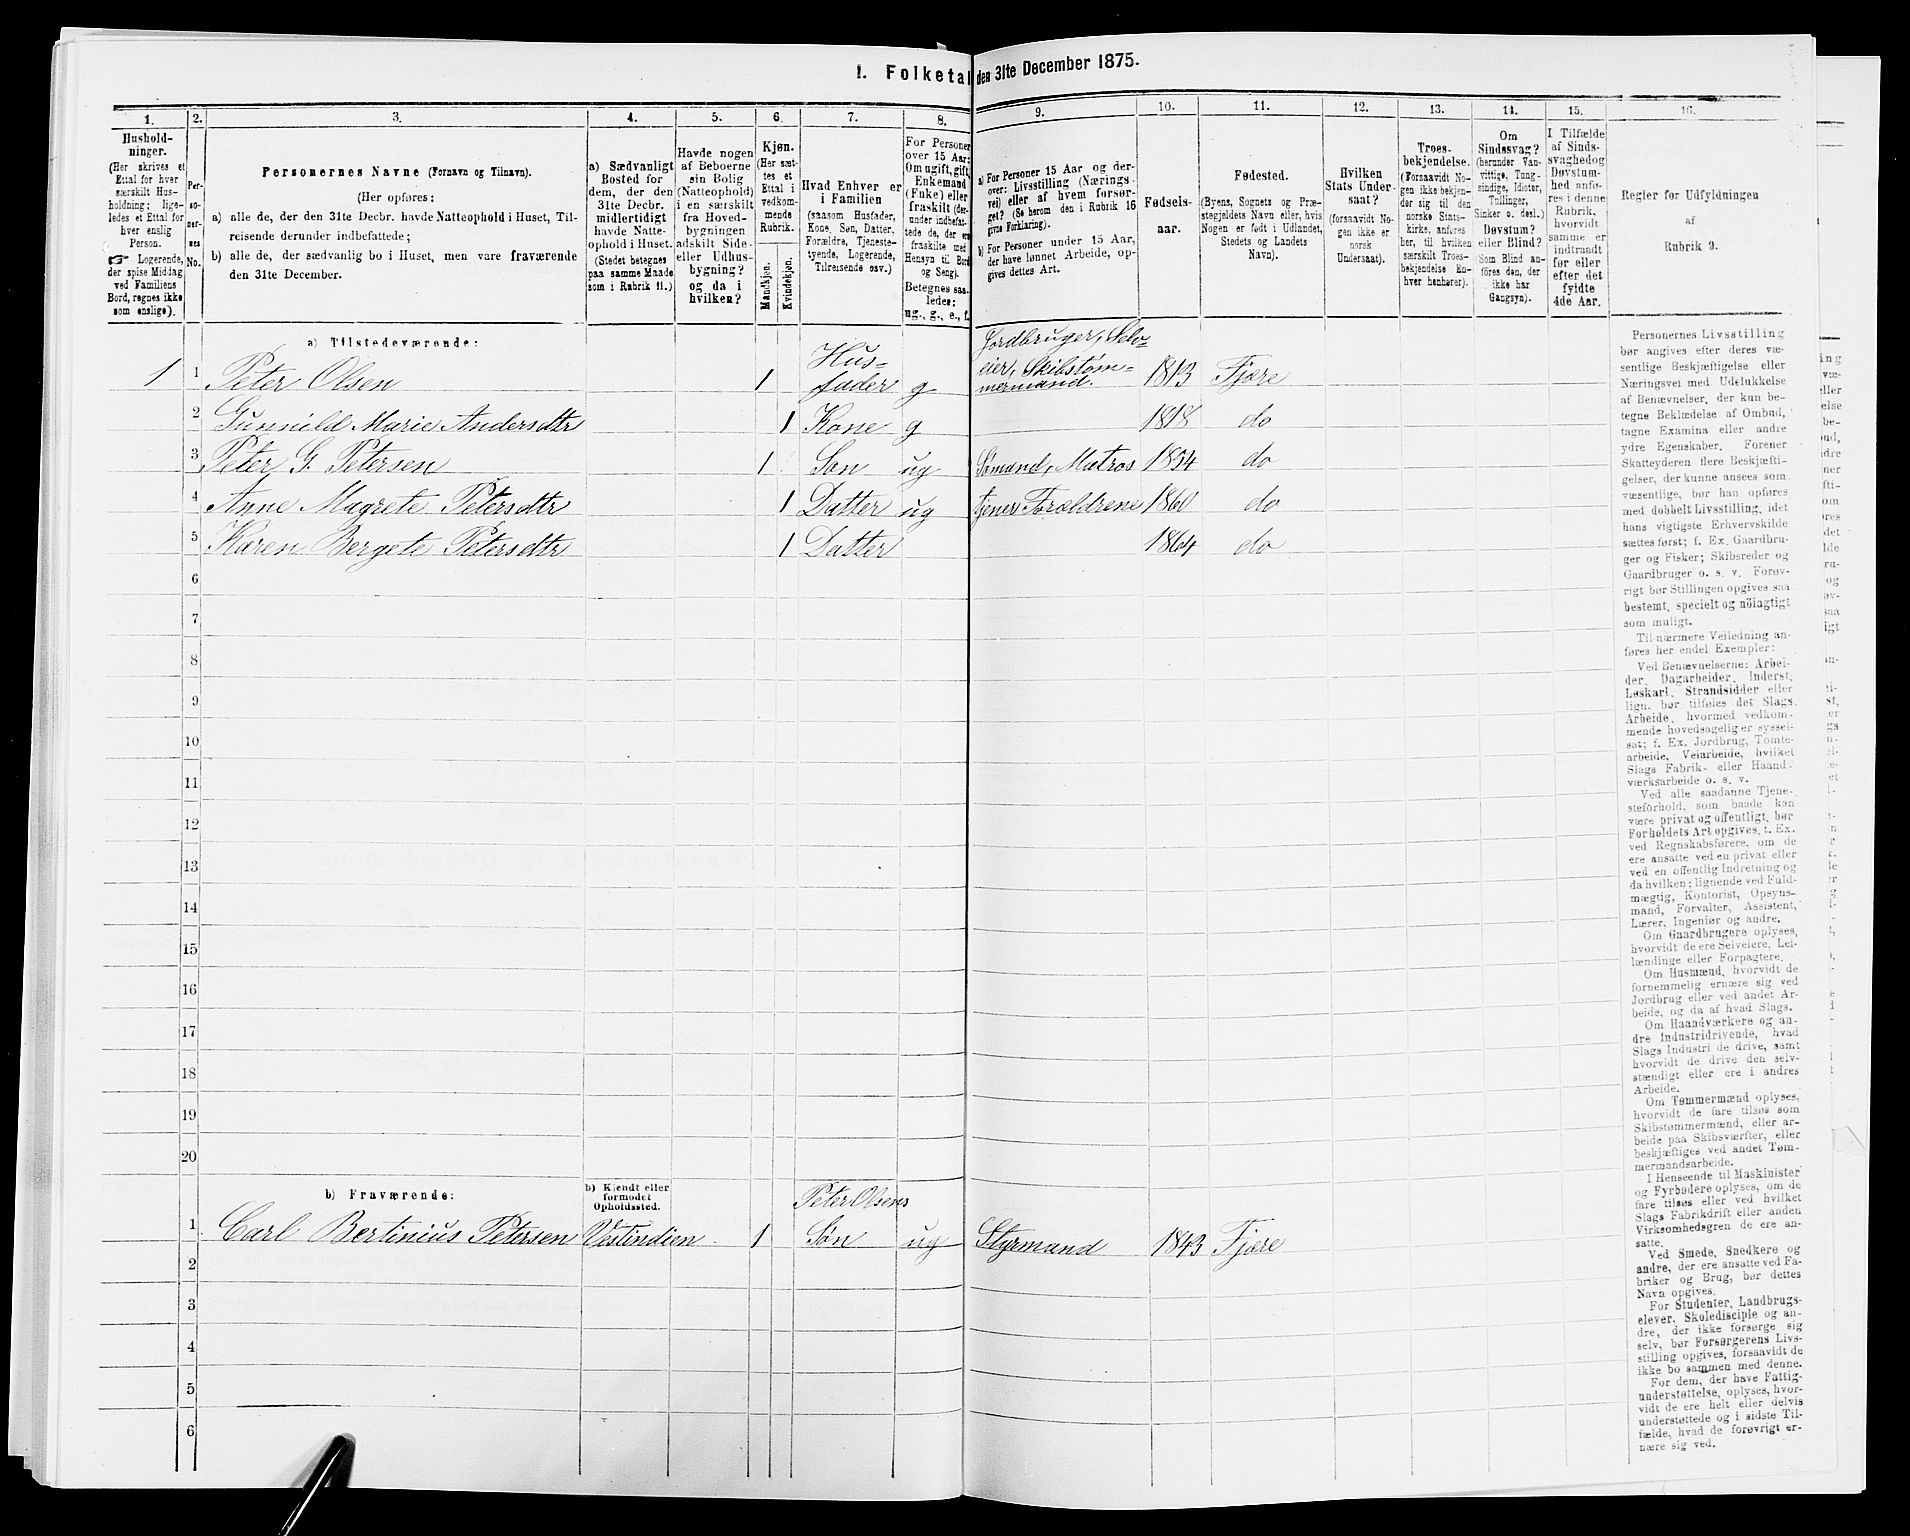 1. Folketal den 31te December 1875.
1.
Hushold-
ninger.
(Her skrives et
Ettal for hver
særskilt Hus-
holdning; lige-
ledes et Ettal for
hver enslig
Person.
☞ Logerende,
der spise Middag
ved Familiens
Bord, regnes ikke
som enslige).
2.
Per-
so-
ner-
nes
No.
3.
Personernes Navne (Fornavn og Tilnavn).
(Her opføres:
a) alle de, der den 31te Decbr. havde Natteophold i Huset, Til-
reisende derunder indbefattede;
b) alle de, der sædvanlig bo i Huset, men vare fraværende
den 31te December.
4.
a) Sædvanligt
Bosted for
dem, der den
31te Decbr.
midlertidigt
havde Natte-
ophold i Huset.
(Stedet betegnes
paa samme Maade
som i Rubrik 11.)
5.
Havde nogen
af Beboerne
sin Bolig
(Natteophold)
i en særskilt
fra Hoved-
bygningen
adskilt Side-
eller Udhus-
bygning?
og da i
hvilken?
6.
Kjøn.
(Her sæt-
tes et
Ettal i
vedkom-
mende
Rubrik.
Mandkjøn.
Kvindekjøn.
7.
Hvad Enhver er
i Familien
(saasom Husfader,
Kone, Søn, Datter,
Forældre, Tjeneste-
tyende, Logerende,
Tilreisende osv.)
8.
For Personer
over 15 Aar:
Om ugift, gift,
Enkemand
(Enke) eller
fraskilt (der-
under indbefat-
tede de, der ere
fraskilte med
Hensyn til Bord
og Seng).
Betegnes saa-
ledes:
ug., g., e., f.
9.
a) For Personer 15 Aar og der-
over: Livsstilling (Nærings-
vei) eller af hvem forsør-
get? (Se herom den i Rubrik 16
givne Forklaring).
b) For Personer under 15 Aar,
der have lønnet Arbeide, op-
gives dettes Art.
10.
Fødsels-
aar.
11.
Fødested.
(Byens, Sognets og Præ-
stegjeldets Navn eller, hvis
Nogen er født i Udlandet,
Stedets og Landets
Navn).
12.
Hvilken
Stats Under-
saat?
(forsaavidt No-
gen ikke er
norsk
Undersaat).
13.
Troes-
bekjendelse.
(Forsaavidt No-
gen ikke bekjen-
der sig til den
norske Stats-
kirke, anføres
her, til hvilken
særskilt Troes-
bekjendelse En-
hver henhører).
14.
Om
Sindssvag?
(herunder Van-
vittige, Tung-
sindige, Idioter,
Tillinger,
Sinker o. desl.)
Døvstum?
eller Blind?
(Som Blind an-
føres den, der
ikke har
Gangsyn).
15.
I Tilfælde
af Sinds-
svaghed og
Døvstum-
hed anfø-
res i denne
Rubrik,
hvorvidt
samme er
indtraadt
før eller
efter det
fyldte
4de Aar.
16.
Regler for Udfyldningen
af
Rubrik 9.
a) Tilstedeværende:
1 1 Peter Olsen 1 Hus-
fader g Jordbruger, Selv-
eier, Skibstøm-
mermand. 1813 Fjære
2 Gunnild Marie Andersdtr 1 Kone g 1818 do
3 Peter G. Petersen 1 Søn ug Sømand, Matros 1854 do
4 Anne Magrete Petersdtr 1 Datter ug tjener Forældrene 1860 do
5 Karen Bergete Petersdtr 1 Datter 1864 do
6
7
8
9
10
11
12
13
14
15
16
17
18
19
20
b) Fraværende:
b) Kjendt eller
formodet
Opholdssted.
1 Carl Bertinius Petersen Vestindien. 1 Peter Olsens
Søn ug Styrmand 1843 Fjære
2
3
4
5
6
Personernes Livsstilling
bør angives efter deres væ-
sentlige Beskjæftigelse eller
Næringsvei med Udelukkelse
af Benævnelser, der kun be-
tegne Beklædelse af Ombud,
tagne Examina eller andre
ydre Egenskaber. Forener
Skatteyderen flere Beskjæfti-
gelser, der kunne ansees som
væsentlige, bør han opføres
med dobbelt Livsstilling, idet
hans vigtigste Erhvervskilde
sættes først; f. Ex. Gaardbru-
ger og Fisker; Skibsreder og
Gaardbruger o. s. v. Forøv-
rigt bør Stillingen opgives saa
bestemt, specielt og nöiagtigt
som muligt.
Til nærmere Veiledning an-
føres her endel Exempler:
Ved Benævnelserne: Arbei-
der, Dagarbeider, Inderst,
Løskarl, Strandsidder eller
lign. bør tilføies det Slags
Arbeide, hvormed vedkom-
mende hovedsagelig er syssel-
sat; f. Ex. Jordbrug, Tomte-
arbeide, Veiarbeide, hvilket
Slags Fabrik- eller Haand-
værksarbeide o. s. v.
Ved alle saadanne Tjene-
steforhold, som baade kan
være privat og offentligt, bør
Forholdets Art opgives, t. Ex.
ved Regnskabsførere, om de
ere ansatte ved en privat eller
ved en offentlig Indretning og
da hvilken; lignende ved Fuld-
mægtig, Kontorist, Opsyns-
mand, Forvalter, Assistent,
Lærer, Ingeniør og andre.
Om Gaardbrugere oplyses,
hvorvidt de ere Selveiere, Lei-
lændinge eller Forpagtere.
Om Husmænd, hvorvidt de
fornemmelig ernære sig ved
Jordbrug eller ved andet Ar-
beide, og da af hvad Slags.
Om Haandværkere og an-
dre Industridrivende, hvad
Slags Industri de drive, samt
hvorvidt de drive den selv-
stændigt eller ere i andres
Arbeide.
Om Tømmermænd oplyses,
hvorvidt de fare tilsøs som
Skibstømmermænd, eller ar-
beide paa Skibsværfter, eller
beskjæftiges ved andet Tøm-
mermandsarbeide.
I Henseende til Maskinister
og Fyrbødere oplyses, om de
fare tilsøs eller ved hvilket
Slags Fabrikdrift eller anden
Virksomhedsgren de ere an-
satte.
Ved Smede, Snedkere og
andre, der ere ansatte ved Fa-
briker og Brug, bør dettes
Navn opgives.
For Studenter, Landbrugs-
elever, Skoledisciple og an-
dre, der ikke forsørge sig
selv, bør Forsørgerens Livs-
stilling opgives, forsaavidt de
ikke bo sammen med denne.
For dem, der have Fattig-
understøttelse, oplyses, hvor-
vidt de ere helt eller delvis
understøttede og i sidste Til-
fælde, hvad de forøvrigt er-
nære sig ved.